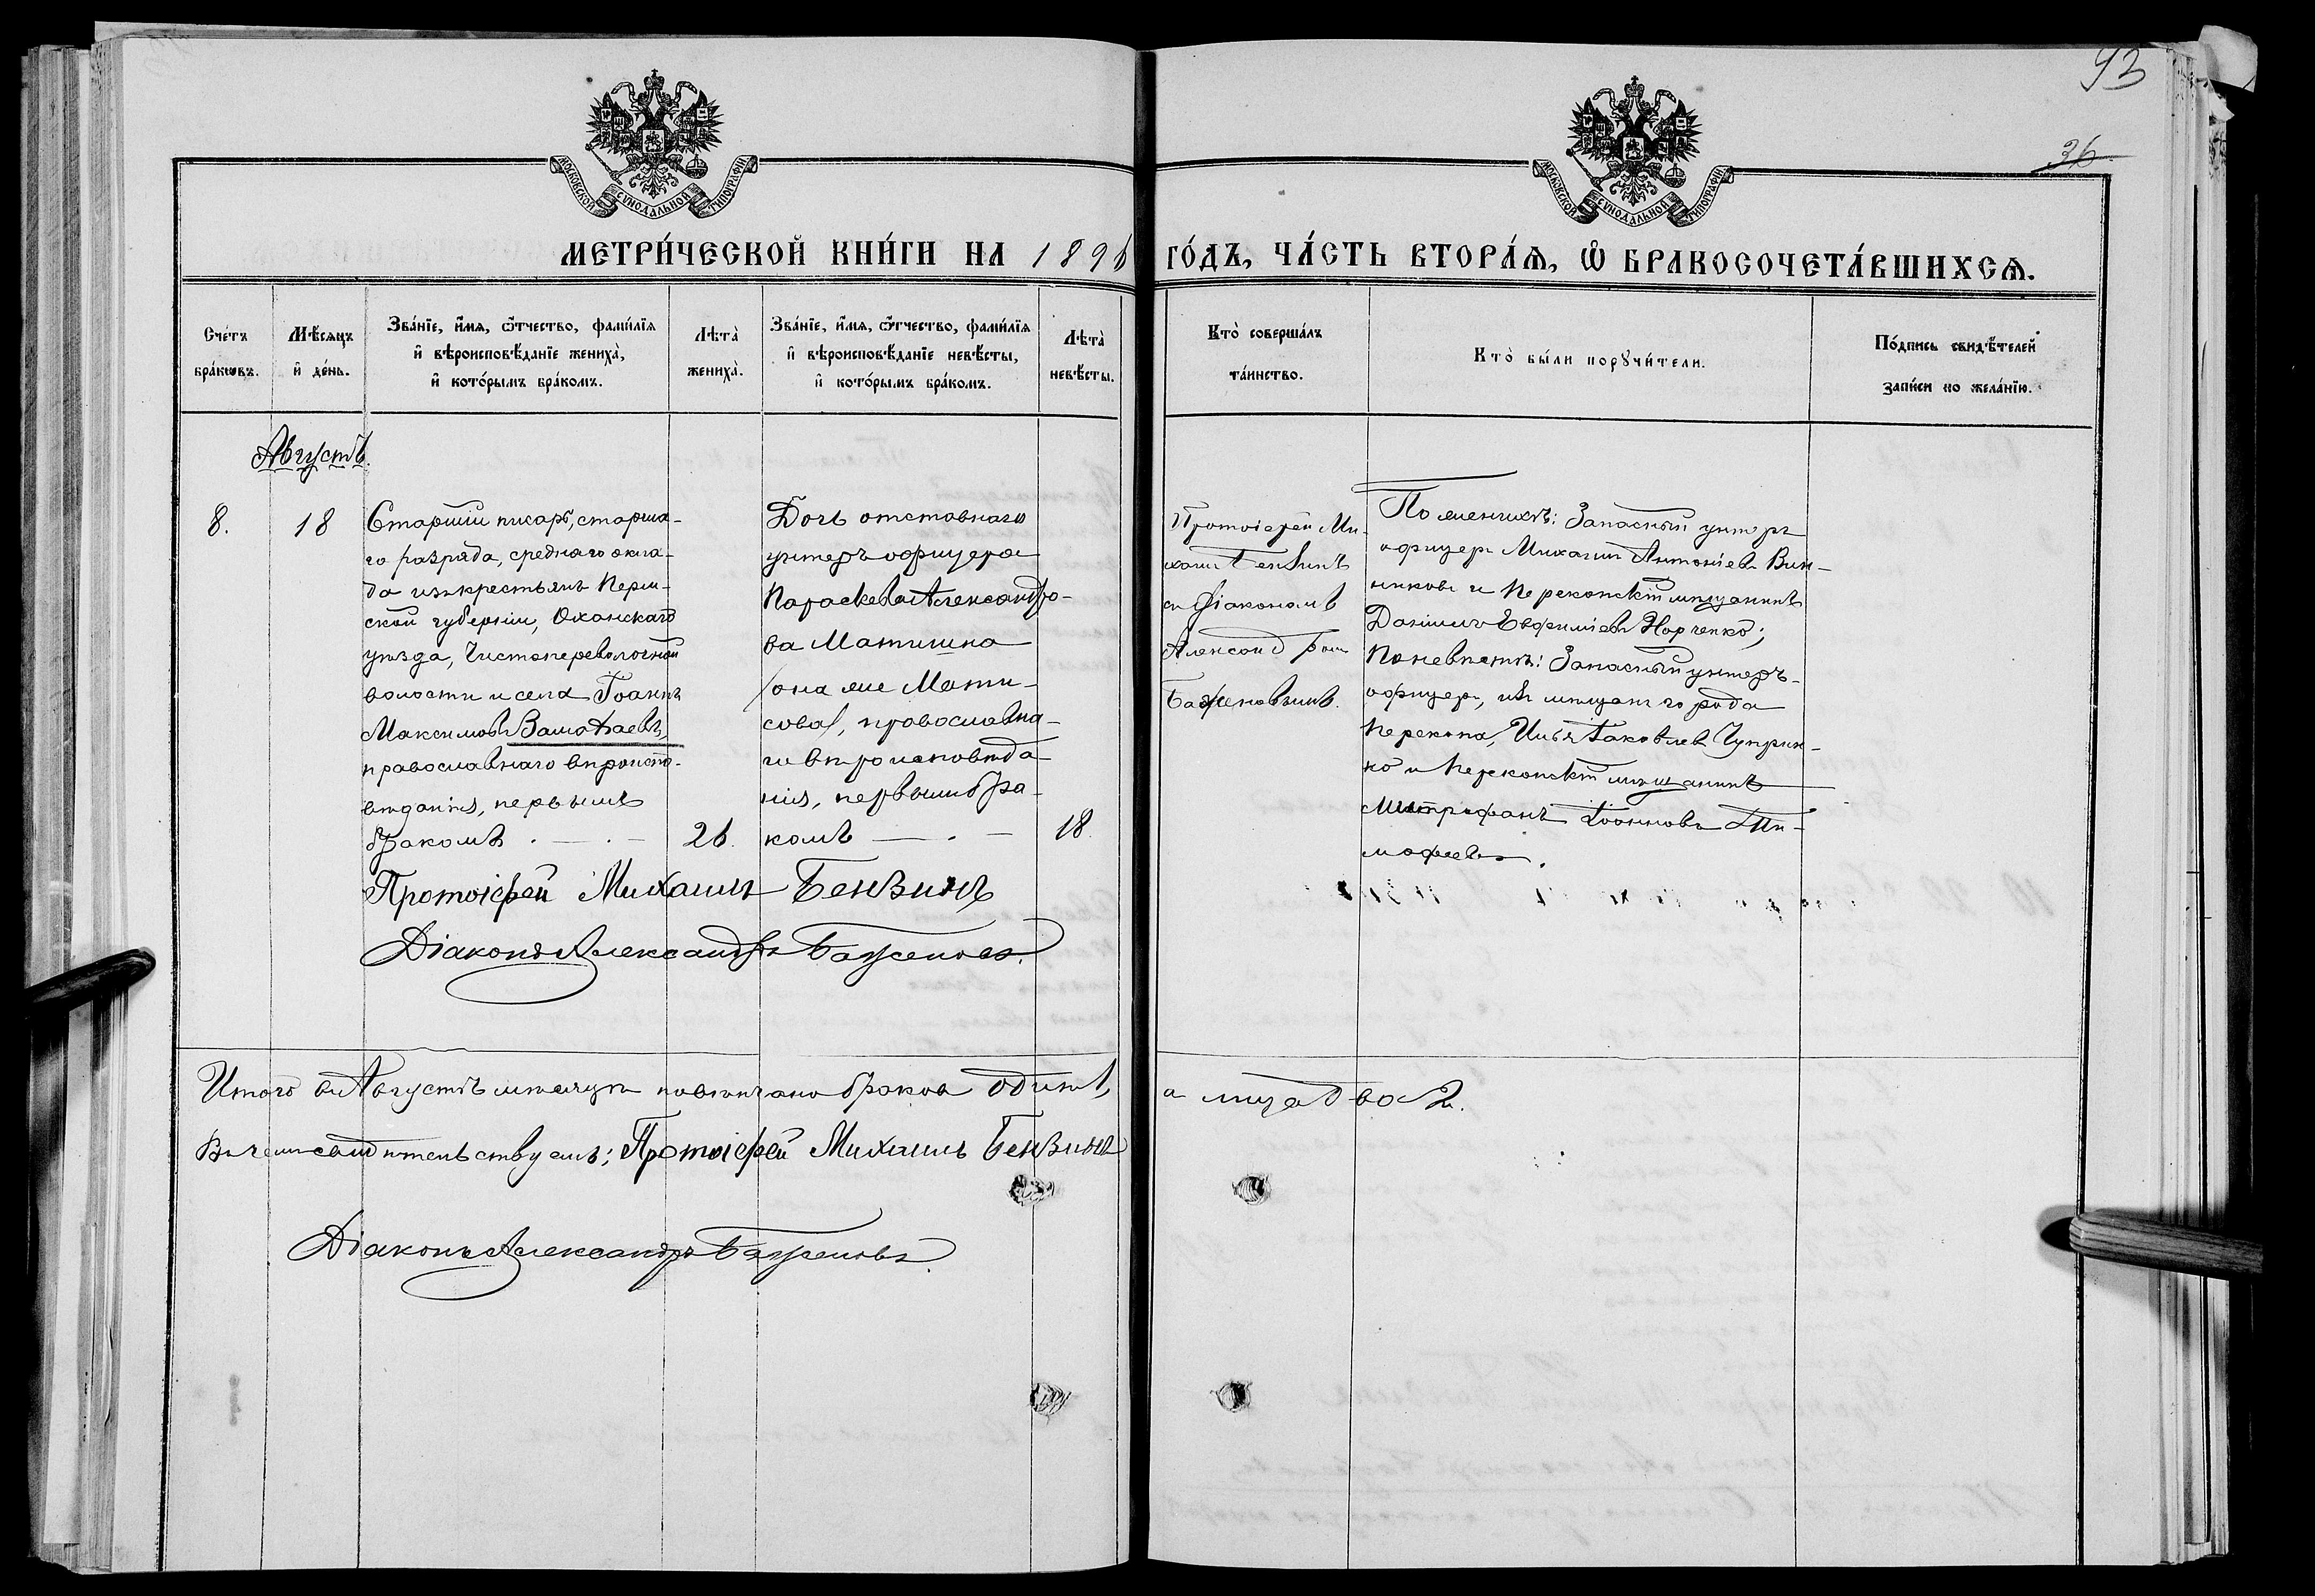 93
36
МОСКОВСКОЙ СѴНОДАЛЬНОЙ ТИПОГРАФІИ
МОСКОВСКОЙ СѴНОДАЛЬНОЙ ТИПОГРАФІИ
МЕТРИ́ЧЕСКОЙ КНИ́ГИ НА 1896 ГО́ДЪ, ЧА́СТЬ ВТОРА́Ѧ, Ѡ҆ БРАКОСОЧЕТА́ВШИХСѦ.
Сче́тъ
бра́ковъ.
Мѣ́сяцъ
и҆ де́нь.
Зва́нїе, и҆́мѧ, ѻ҆́тчество, фами́лїѧ
и҆ вѣроисповѣ́данїе жениха̀,
и҆ кото́рымъ бра́комъ.
Лѣта̀
жениха̀.
Зва́нїе, и҆́мѧ, ѻ҆́тчество, фами́лїѧ
и҆ вѣроисповѣ́данїе невѣ́сты,
и҆ кото́рымъ бра́комъ.
Лѣта̀
невѣ́сты.
Кто̀ соверша́лъ
та́инство.
Кто̀ бы́ли порꙋчи́тели.
По́дпись свидѣ́телей
за́писи по жела́нїю.
Августъ.
8.
18
Старшій писарь, старша-
го разряда, средняго окла-
да изъ крестьянъ Перм-
ской губерніи, Оханскаго
уѣзда, Чистопереволочной
волости и села Іоаннъ
Максимовъ
православнаго вѣроиспо-
вѣданія, первымъ
бракомъ . — . —
26.
Дочь отставнаго
унтеръ офицера
Параскева Александро-
ва Матишна
/она же Мати-
сова/, православна-
го вѣроисповѣда-
нія, первымъ бра-
комъ — . —
18.
Протоіерей Ми-
хаилъ Бензинъ
съ діакономъ
Александромъ
Баженовымъ.
По женихѣ: Запасный унтеръ
офицеръ Михаилъ Антоніевъ Вин-
никовъ и Перекопскій мѣщанинъ
Даніилъ Евфиміевъ Харченко;
По невѣстѣ: Запасный унтеръ-
офицеръ, изъ мѣщанъ города
Перекопа, Илья Іаковлевъ Чуприн-
ко и Перекопскій мѣщанинъ
Митрофанъ Іоанновъ Ти-
мофеевъ.
Протоіерей Михаилъ Бензинъ
Діаконъ Александръ Баженовъ.
Итого въ Августѣ мѣсяцѣ повѣнчано браковъ одинъ, а лицъ два 2.
Въ чемъ свидѣтельствуемъ: Протоіерей Михаилъ Бензинъ
Діаконъ Александръ Баженовъ.